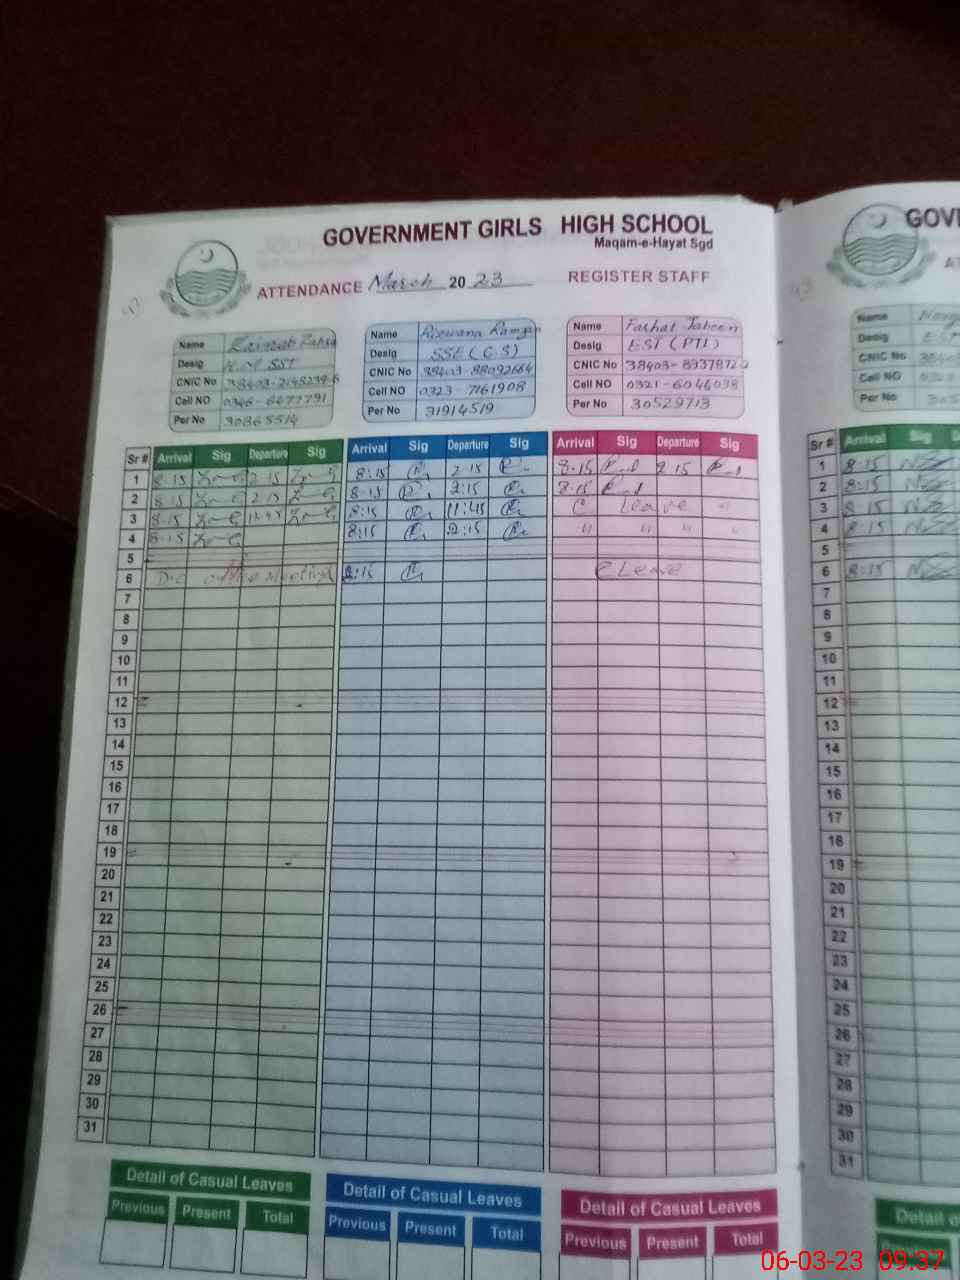 GOVERNMENT GIRLS HIGH SCHOOL
Maqam-e-Hayat Sgd
ATTENDANCE March 2023 REGISTER STAFF
Name Zainab Zahra
Desig H.M SST
CNIC No
Cell NO 0346-6477791
Per No 30865514
Name Rizwana Ramzan
Desig SSE (C.S)
CNIC No 38403-88092664
Cell NO 0323-7161908
Per No 31914519
Name Farhat Jabeen
Desig EST (PTI)
CNIC No 38403-8937872-2
Cell NO 0321-6044038
Per No 30529713
Sr # Arrival Sig Departure Sig Arrival Sig Departure Sig Arrival Sig Departure Sig
1 8-15 2 15 8:15 2-15 8-15 2 15
2 8-15 2-15 8-15 2:15 8-15
3 8-15 8:15 11:45 C Leave "
4 8-15 8:15 2:15 " " " "
5
6 office Meeting 8:15 C Leave
7
8
9
10
11
12
13
14
15
16
17
18
19
20
21
22
23
24
25
26
27
28
29
30
31
Detail of Casual Leaves
Previous Present Total
Detail of Casual Leaves
Previous Present Total
Detail of Casual Leaves
Previous Present Total
GOV
Name
Desig
CNIC No
Cell NO
Per No
Sr # Arrival Sig
1 8-15
2 8:15
3 8:15
4 8-15
5
6 8:15
7
8
9
10
11
12
13
14
15
16
17
18
19
20
21
22
23
24
25
26
27
28
29
30
31
Detail o
06-03-23 09:37